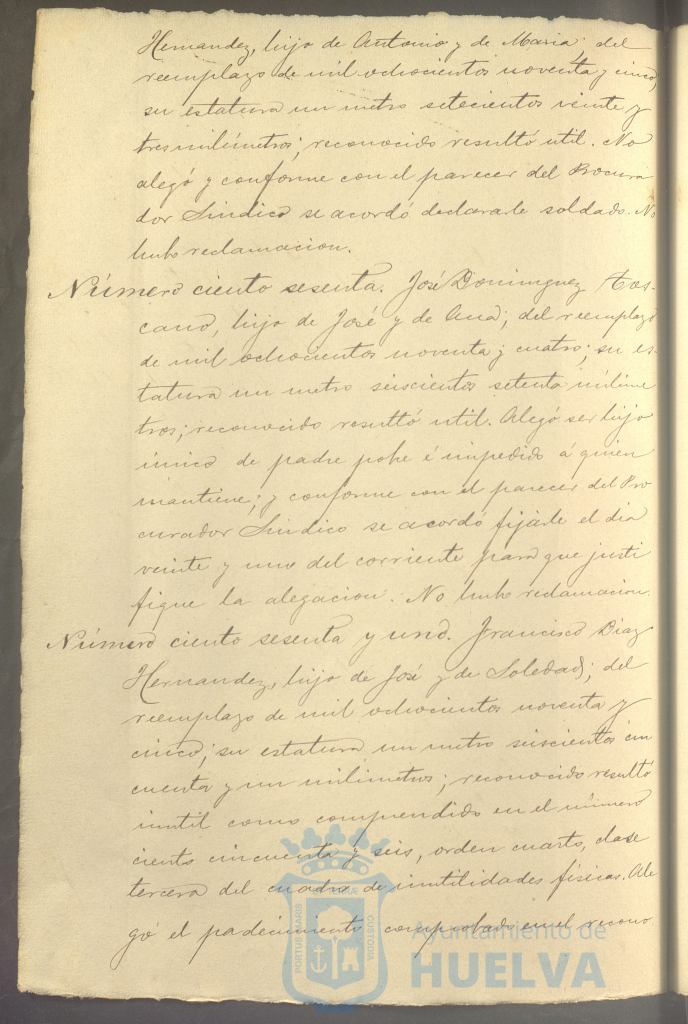 Hernandez, hijo de Antonio y de Maria; del
reemplazo de mil ochocientos noventa y cinco;
su estatura un metro setecientos veinte y
tres milímetros; reconocido resultó util. No
alegó y conforme con el parecer del Procura
dor Síndico se acordó declararle soldado. No
hubo reclamacion.
Número ciento sesenta. José Dominguez Tos-
cano, hijo de José y de Ana; del reemplazo
de mil ochocientos noventa y cuatro; su es-
tatura un metro seiscientos setenta milíme
tros; reconocido resultó util. Alegó ser hijo
único de padre pobre é impedido á quien
mantiene; y conforme con el parecer del Pro
curador Síndico se acordó fijarle el dia
veinte y uno del corriente para que justi
fique la alegacion. No hubo reclamacion.
Número ciento sesenta y uno. Francisco Diaz
Hernandez, hijo de José y de Soledad; del
reemplazo de mil ochocientos noventa y
cinco; su estatura un metro seiscientos cin
cuenta y un milimetros; reconocido resultó
inutil como comprendido en el número
ciento cincuenta y seis, orden cuarto, clase
tercera del cuadro de inutilidades físicas. Ale
gó el padecimiento comprobado en el recono
PORTUS MARIS
CUSTODIA
Ayuntamiento de
HUELVA